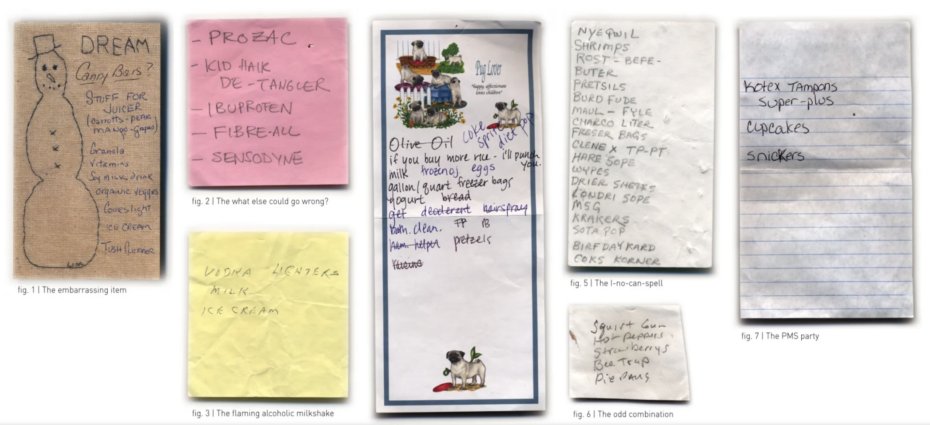 DREAM
Canny Bars?
STUFF FOR
JUICER
(carrotts - pears
mango - grapes)
Granola
Vitamins
Soy milk drink
organic veggies
Coors light
ICE CREAM
fig. 1 | The embarrassing item
- PROZAC
- KID HAIR
DE-TANGLER
- IBUPROFEN
- FIBRE-ALL
- SENSODYNE
fig. 2 | The what else could go wrong?
VODKA LIGHTERS
MILK
ICE CREAM
fig. 3 | The flaming alcoholic milkshake
Pug Lover
"happy affectionate
loves children"
Olive Oil
coke
sprite
diet pop
if you buy more rice - i'll punch
you.
milk frozenoj eggs
gallon/quart freezer bags
yogurt bread
get deoderent hairspray
bath. clean. TP PB
ham. helper pretzels
NYEQWIL
SHRIMPS
ROST-BEFE-
BUTER
PRETSILS
BURD FUDE
MAUL-FYLE
CHARCO LITER
FRESER BAGS
CLENEX TP-PT
HARE SOPE
WYPES
DRIER SHETES
LONDRI SOPE
MSG
KRAKERS
SOTA POP
BIRFDAY KARD
COKS KORNER
fig. 5 | The I-no-can-spell
Squirt Gun
Hot Peppers
Strawberrys
Bee Trap
Pie Pans
fig. 6 | The odd combination
Kotex Tampons
Super-plus
Cupcakes
Snickers
fig. 7 | The PMS party